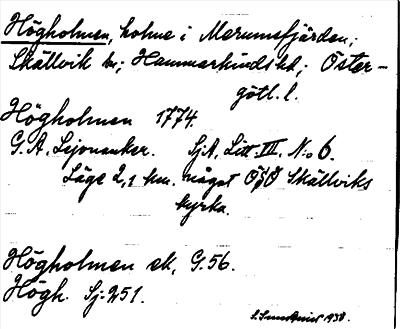 Högholmen, holme i Merumsfjärden;
Skällvik sn; Hammarkinds hd; Öster-
götl. l.
Högholmen 1774.
G. A. Lejonanker. SjA, Litt. III. N:o 6.
Läge 2,1 km. något ÖSÖ Skällviks
kyrka.
Högholmen ek, G. 56.
Högh. Sj. 251.
1938.